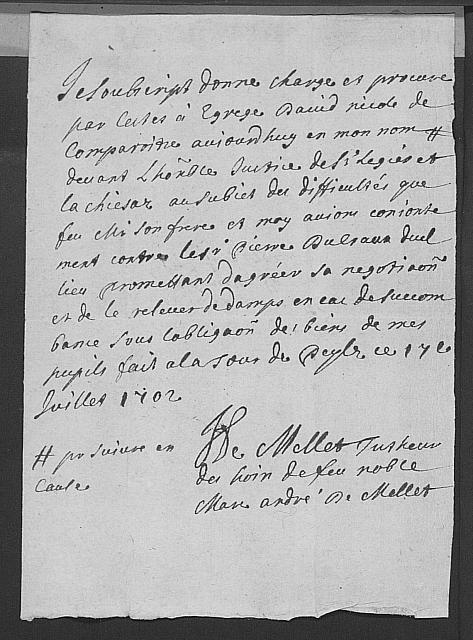 Je soubscript donne charge et procure
par cestes à Egrege David nicod de
Comparoitre aujourdhuy en mon nom #
devant Lhoñble Justice de St Legier et
la chiesaz au subiet des difficultés que
feu Mr son frere et moy avions conjointe
ment contre le sr Pierre Dulraux dudl
lieu promettant d'agréer sa negotiaoñ
et de le relever de damps en cas de succom
bance sous lobligaoñ des biens de mes
pupils fait a la Tour de Peylz ce 17e
Juillet 1702
# pr suivre en
Cause
De Mellet Tutheur
des hoirs de feu noble
Marc andré De Mellet